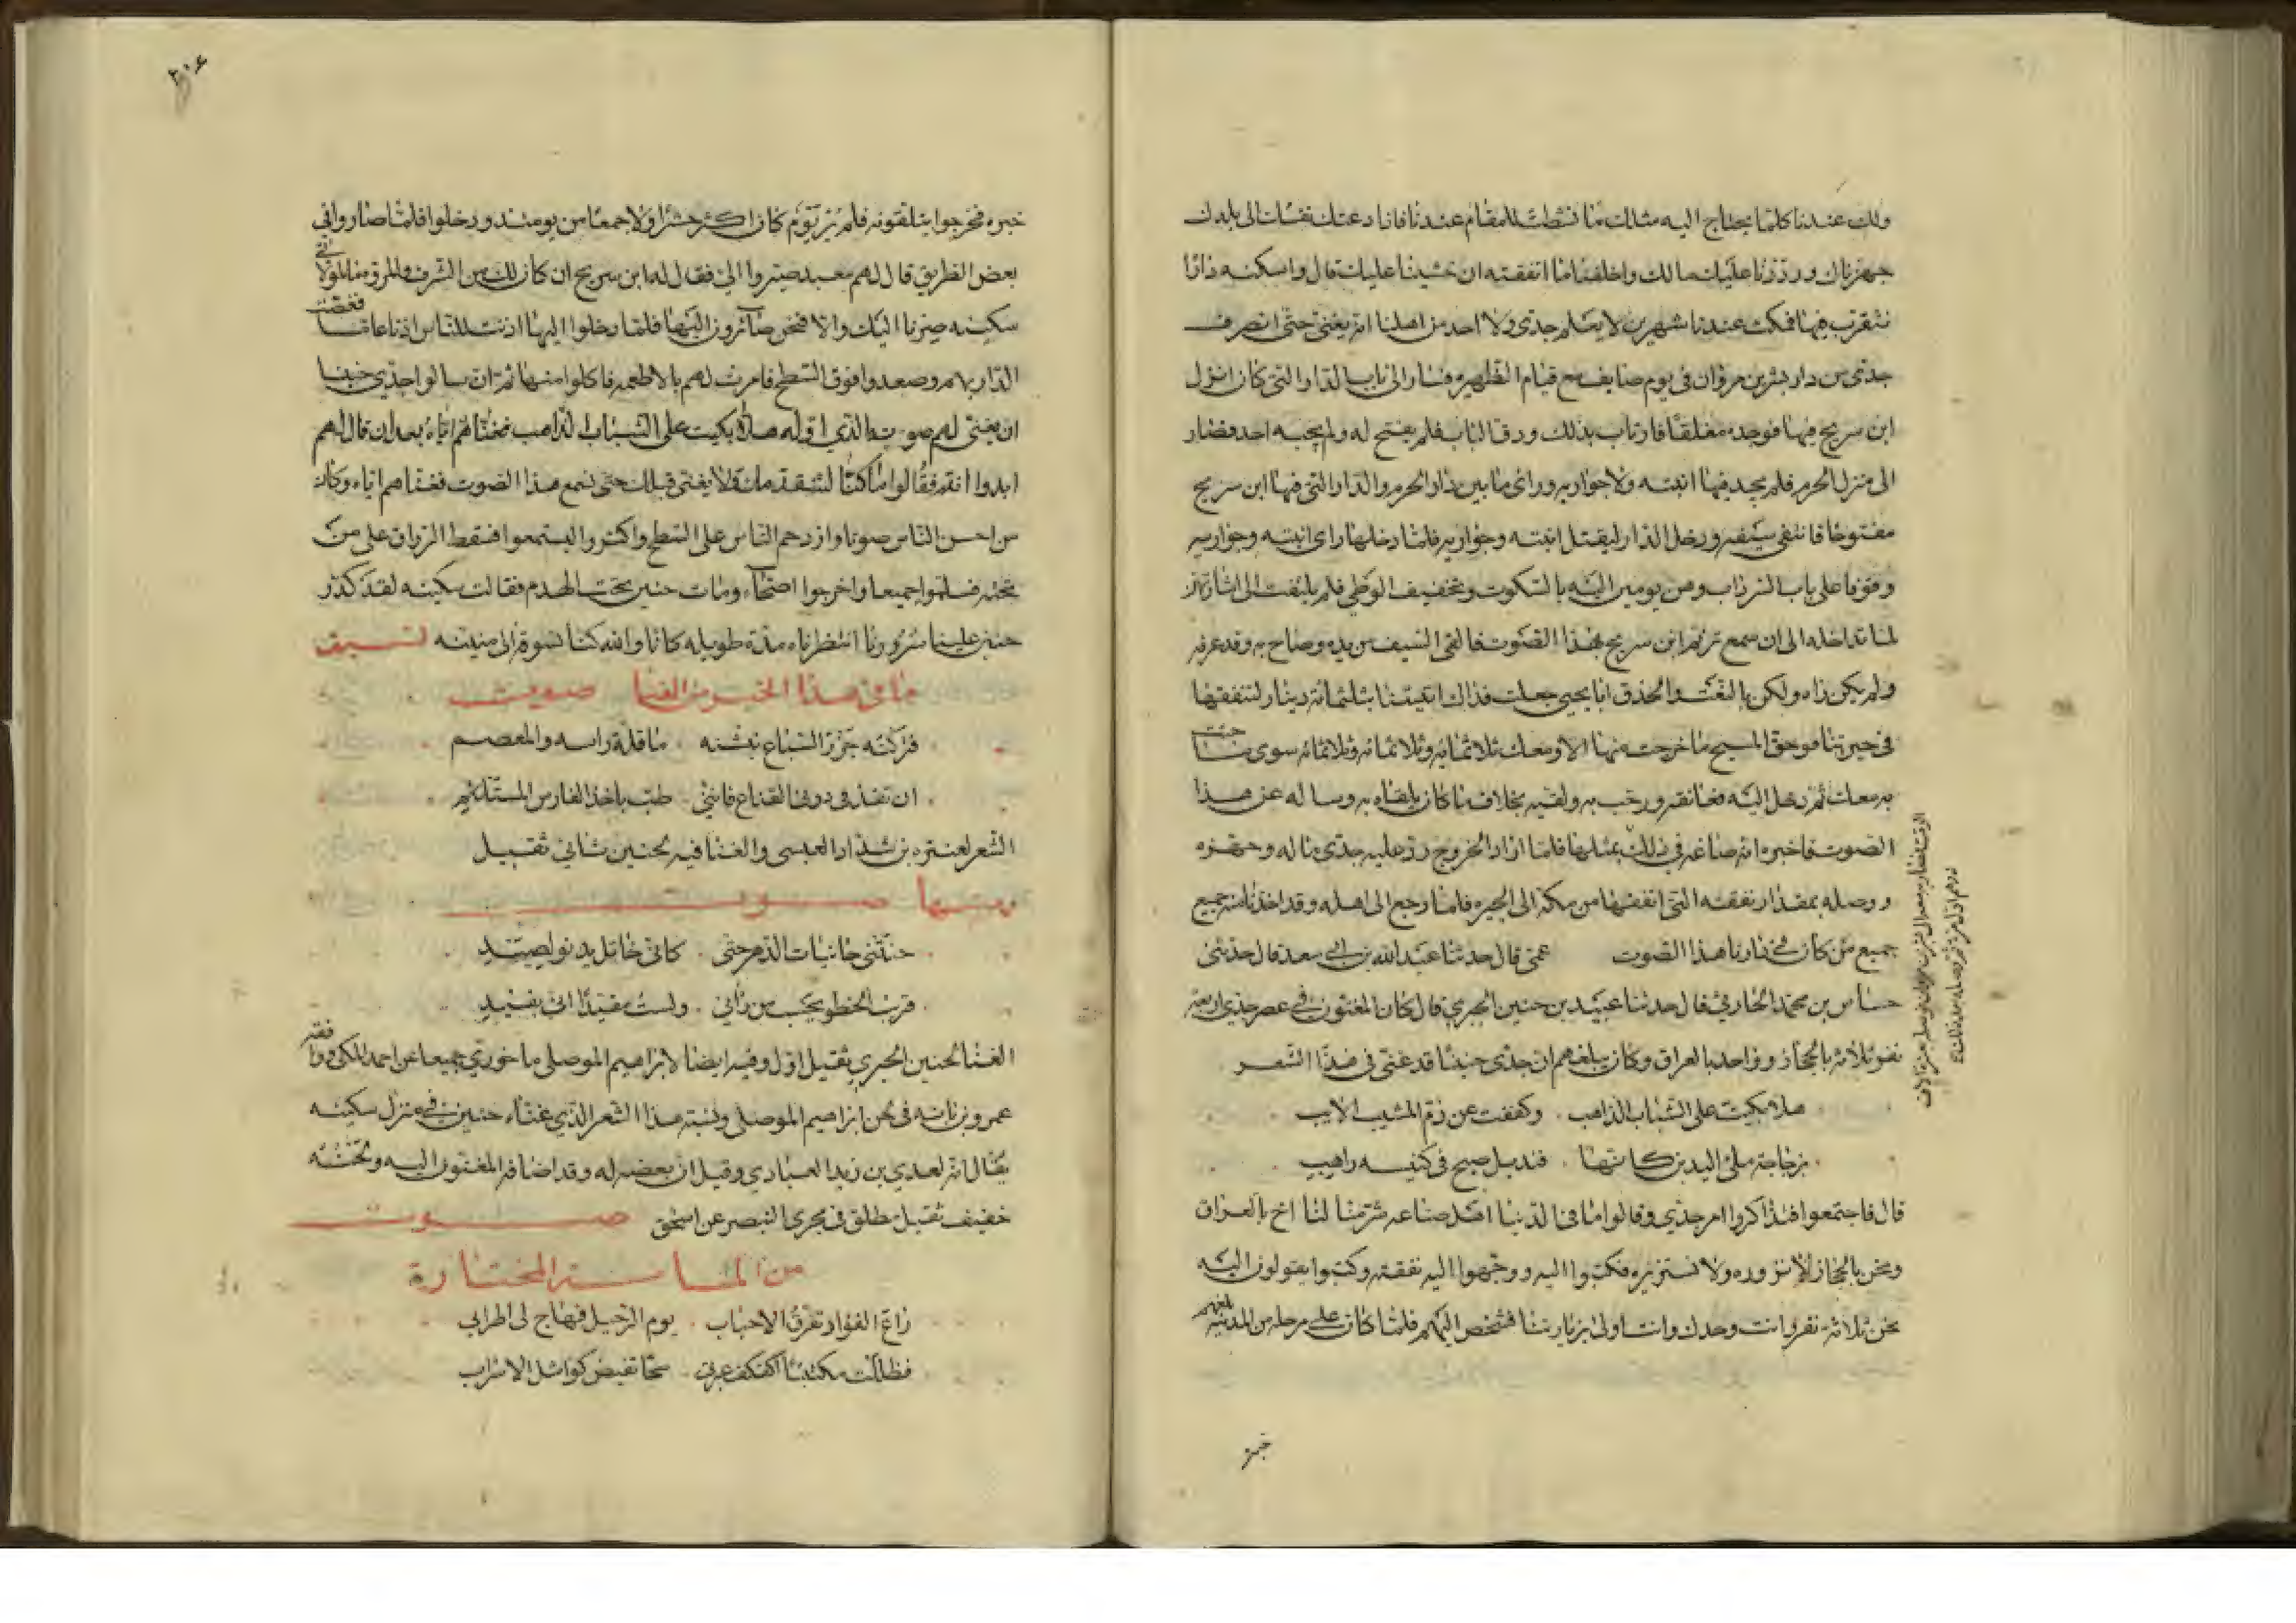 ولك عندنا كلما يحتاج اليه مثلك ما نشطت للمقام عندنا فاذا دعتك نفسك الى بلدك
جهزناك ورددنا عليك مالك واخلفنا ما انفقته ان جشينا عليك قال واسكنه دارا
نتقرب فيها فمكث عندنا شهرين لا يعلم جدي ولا احد من اهلنا انه يغني حتى انصرف
جدي من دار بشر بن مروان في يوم صايف مع قيام الظهيره فصار الى باب الدار التي كان انزل
ابن سريج فيها فوجده مغلقا فارتاب بذلك ودق الباب فلم يفتح له ولم يجبه احد فصار
الى منزل الحرم فلم يجد فيها ابنته ولا جواريه وراى ما بين دار الحرم والدار التي فيها ابن سريج
مفتوحا فانتضى سيفه ودخل الدار ليقتل ابنته وجواريه فلما دخلها راى ابنته وجواريه
وقوفا على باب السرداب وهن يومين اليه بالسكوت وتخفيف الوطي فلم يلتفت الى اشارتهن
لما تداخله الى ان سمع ترنم ابن سريج بهذا الصوت فالقى السيف من يده وصاح به وقد عرفه
ولم يكن راه ولكن بالنعت والحذق ابا يحيى جعلت فداك اتيتنا بثلثمائة دينار لتنفقها
في حيرتنا فوحق المسيح ما خرجت منها الا ومعك ثلاثمائه وثلاثمائه وثلاثمائه سوى ما جئت
به معك ثم دخل اليه فعانقه ورحب به ولقيه بخلاف ما كان يلقاه به وساله عن هذا
الصوت فاخبره انه صاغه في ذلك
ووصله بمقدار نفقته التي انفقها من مكة الى الحيره فلما رجع الى اهله وقد اخذنا منه جميع
جميع من كان في دارنا هذا الصوت عمي قال حدثنا عبد الله بن ابي سعد قال حدثني
حساس بن محمد الحارثي قال حدثنا عبيد بن حنين الحيري قال كان المغنون في عصر جدي اربعه
نفر ثلاثه بالحجاز وواحد بالعراق وكان يبلغهم ان جدي حنينا قد غنى في هذا الشعر
هلا بكيت على الشباب الذاهب وكففت عن ذم المشيب الايب
بزجاجة ملئ اليدين كانها قنديل صبح في كنيسه راهب
قال فاجتمعوا فتذاكروا امر جدي وقالوا ما في الدنيا اهل صناعه شر منا لنا اخ بالعراق
ونحن بالحجاز لا نزوره ولا نستزيره فكتبوا اليه ووجهوا اليه نفقته وكتبوا يقولون اليه
نحن ثلاثة نفر وانت وحدك وانت اولى بزيارتنا فشخص اليهم فلما كان على مرحله من المدينه بلغهم
خبره
٢٠٤
خبره فخرجوا يتلقونه فلم ير يوم كان اكثر حشرا ولا جمعا من يومئذ ودخلوا فلما صاروا في
بعض الطريق قال لهم معبد صيروا الي فقال له ابن سريج ان كان لك من الشرف والمروة ما لمولاتي
سكينه صرنا اليك والا فنحن صائرون اليها فلما دخلوا اليها اذنت للناس اذنا عاما فغصت
الدار بهم وصعدوا فوق السطح فامرت لهم بالاطعمه فاكلوا منها ثم ان سالوا جدي حنينا
ان يغنى لهم صوته الذي اوله هلا بكيت على الشباب الذاهب فغناهم اياه بعد ان قال لهم
ابدوا انتم فقالوا ما كنا لنتقدمك ولا نغني قبلك حتى نسمع هذا الصوت فغناهم اياه وكان
من احسن الناس صوتا وازدحم الناس على السطح واكثروا ليستمعوا فسقط الرواق على من
تحته فسلموا جميعا واخرجوا اصحاء ومات حنين تحت الهدم فقالت سكينه لقد كدر
حنين علينا سرورنا انتظرناه مدة طويله كانا والله كنا نسوقه الى منيته نسبة
ما في هذا الخبر من الغنا صوت
فتركته جزر السباع ينشنه ما قلة راسه والمعصم
ان تغدفي دوني القناع فانني طب باخذ الفارس المستلئم
الشعر لعنتره بن شداد العبسي والغنا فيه لحنين ثاني ثقيل
ومنها صوت
حنتني حانيات الدهر حتى كاني خاتل يدنو لصيد
قريب الخطو يحسب من رآني ولست مقيدا اني بقيد
الغنا لحنين الحيري ثقيل اول وفيه ايضا لابراهيم الموصلي ماخوري جميعا عن احمد المكي ووافقه
عمرو بن بانه في لحن ابراهيم الموصلي ونسبة هذا الشعر الذي غناه حنين في منزل سكينه
يقال انه لعدي بن زيد العبادي وقيل ان بعضه له وقد اضافه المغنون اليه ولحنه
خفيف ثقيل مطلق في مجرى البنصر عن اسحق صوت
من المائة المختارة
راع الفؤاد تفرق الاحباب يوم الرحيل فهاج لي اطرابي
فظللت مكتئبا اكفكف عبرتي سحا تفيض كواشل الاسراب